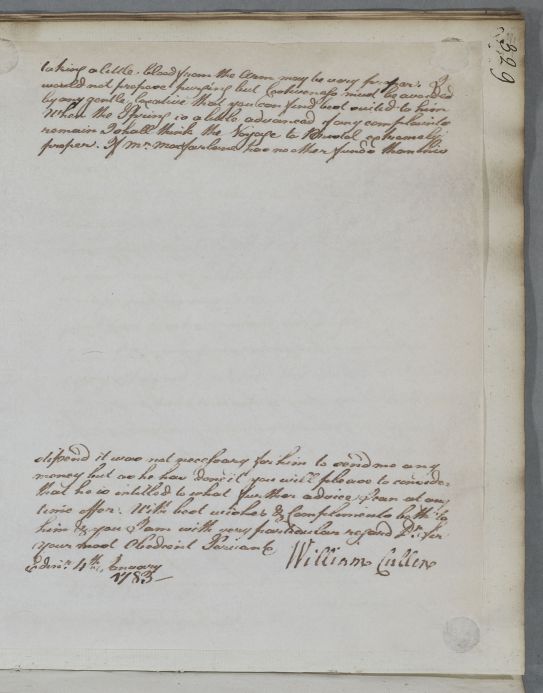 329
taking a little blood from the Arm may be very proper. I
would not propose purging but Costiveness must be avoided
by any gentle laxative that you can find best suited to him
When the Spring is a little advanced if any complaints
remain I shall think the Voyage to Bristol extremely
proper. If Mr. Macfarlane has no other funds than his
dispend it was not necessary for him to send me any
money but as he has done it you will please to consider
that he is intitled to what further advice I can at any
time offer. With best wishes & Compliments both to
him & you I am with very particular regard Dr. Sir
Your most Obedient Servant
William Cullen
Edinr. 4th. January
1783